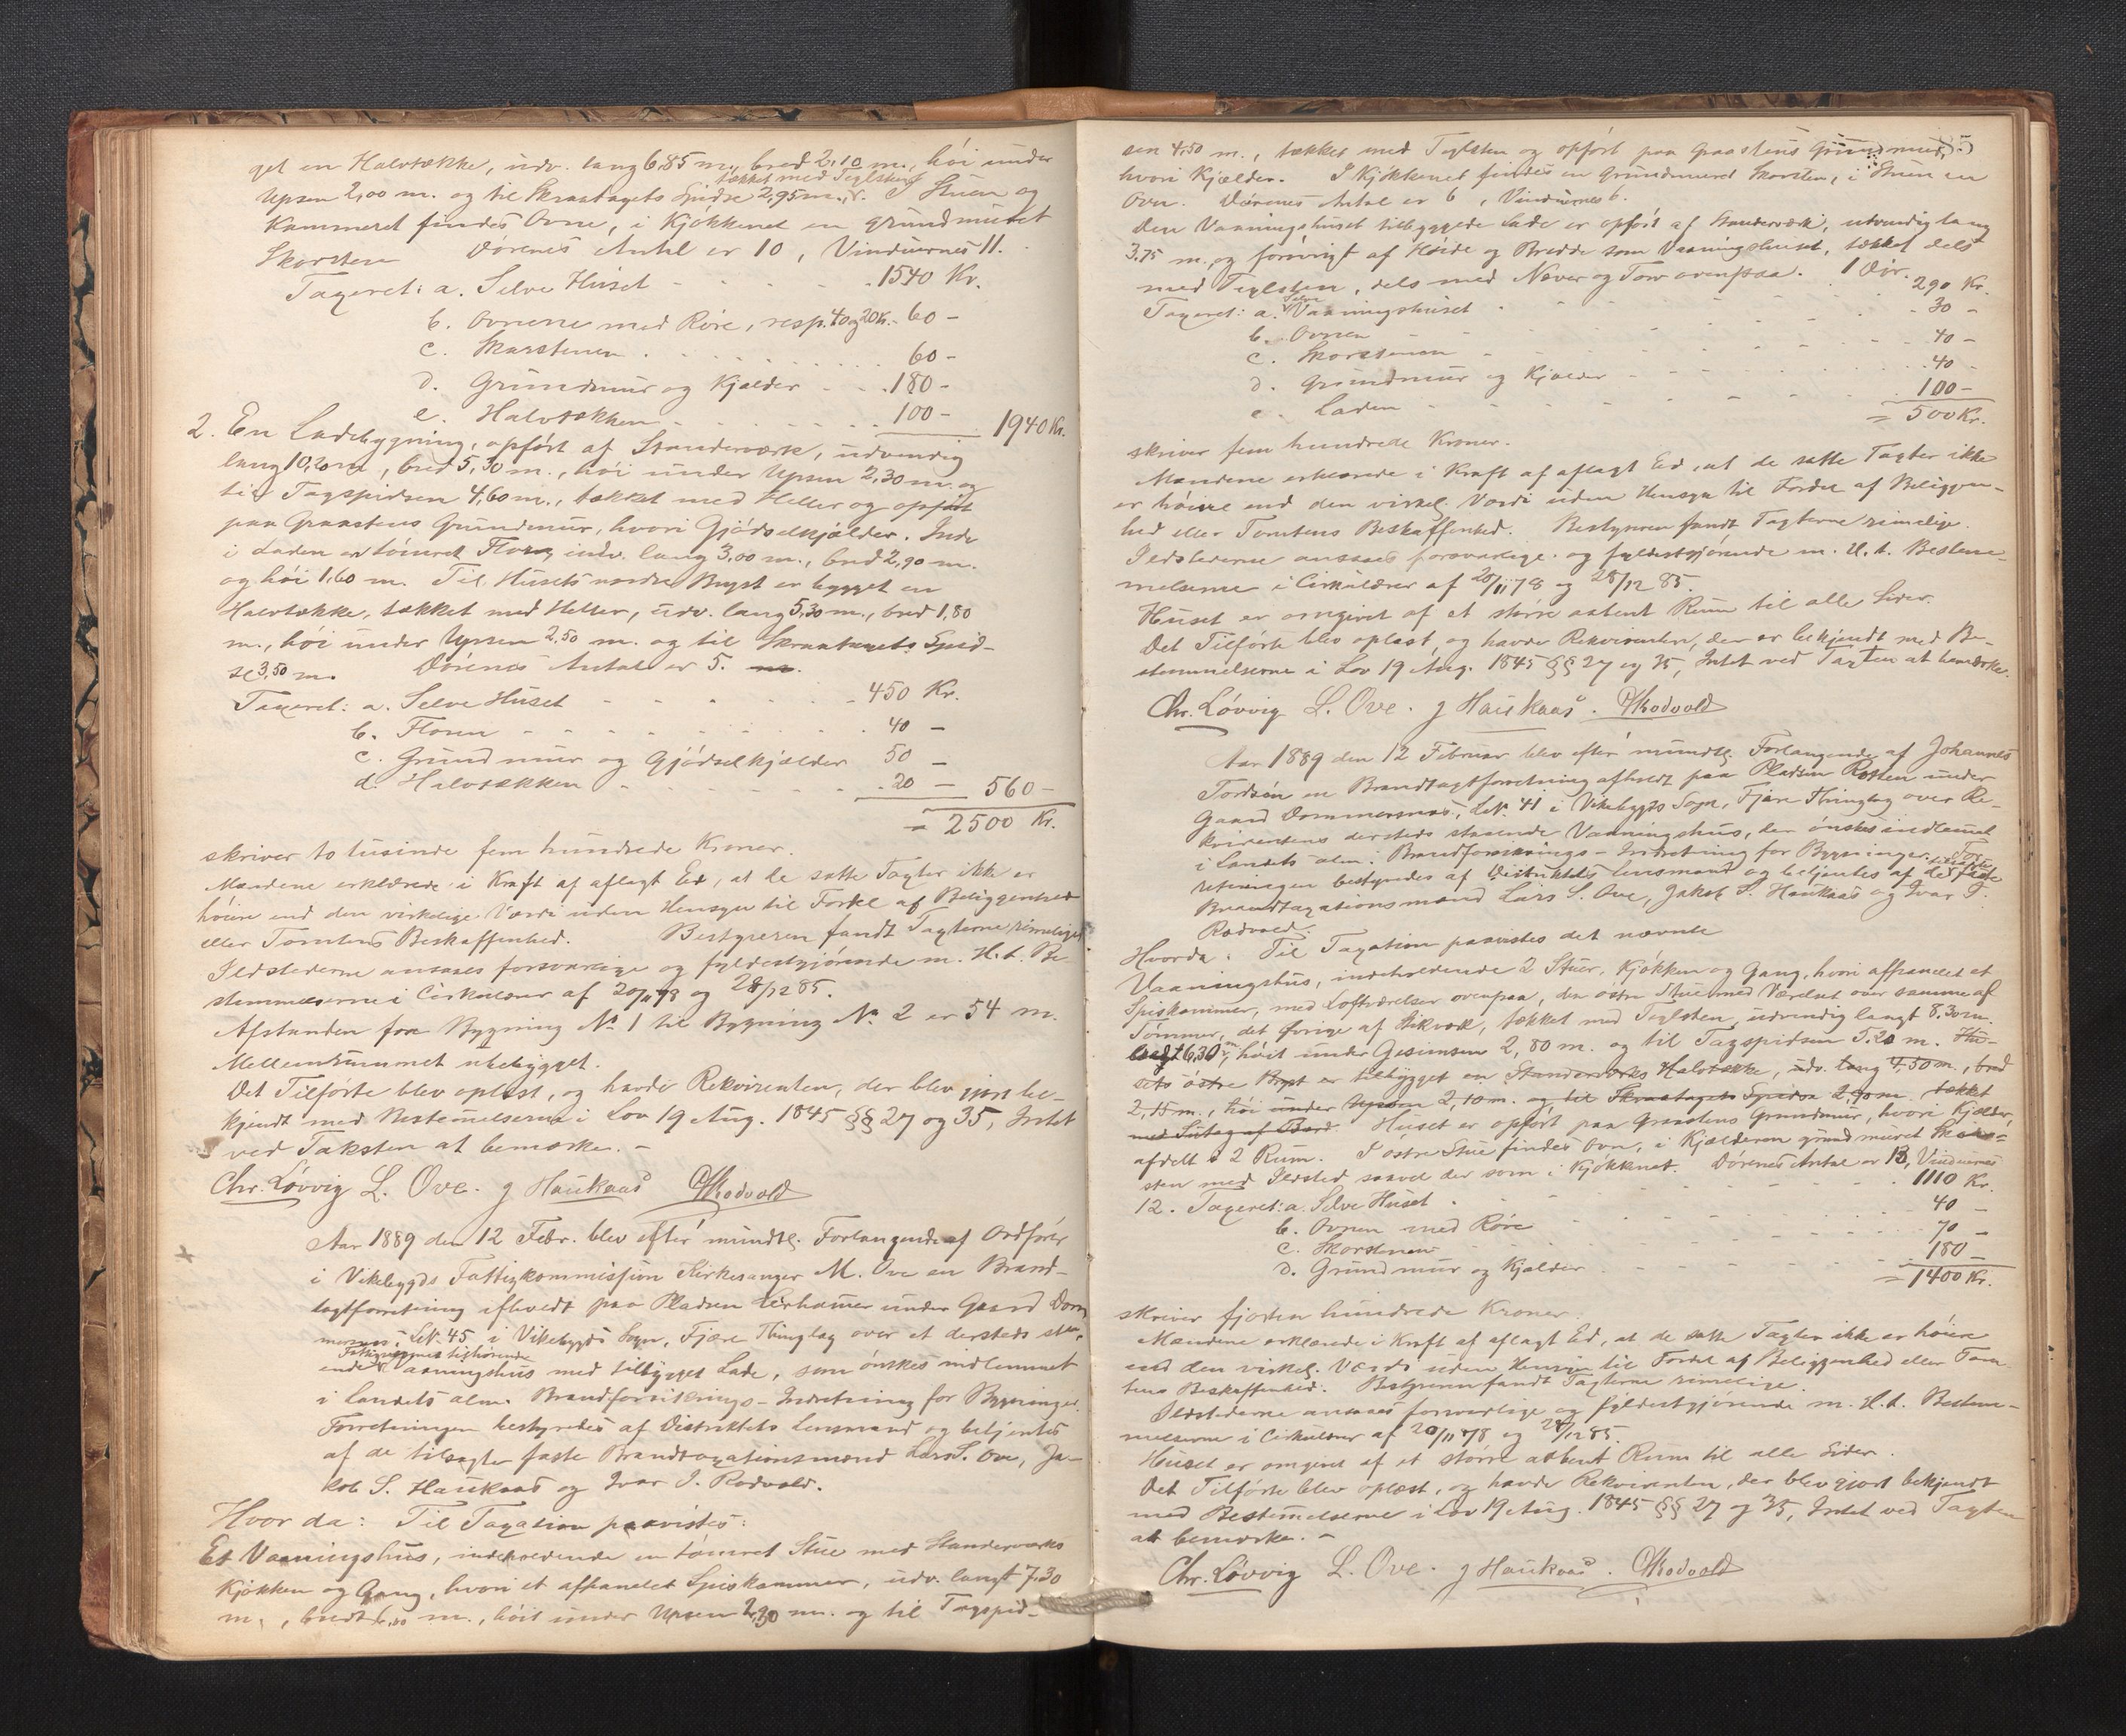 get en Halvtække, udv. lang 6,85 m., bred 2,10 m., hói under
tækket med Teglsten
Upsen 2,00 m. og til Skraatagets Spidse 2,95 m. I Stuen og
Kammeret findes Ovne, i Kjøkkenet en grundmuret
Skorsten Dørenes Antal er 10, Vinduernes 11.
Taxeret: a. Selve Huset - - - 1540 Kr.
b. Ovnene med Røre, resp. 40 og 20 Kr. - 60 -
c. Skorstenen . . . 60 -
d. Grundmur og Kjælder - - . 180 -
e. Halvtækken . . . 100 - 1940 Kr.
2. En Ladebygning, opført af Standerværk, udvendig
lang 10,20 m, bred 5,30 m., hói under Upsen 2,30 m. og
til Tagspidsen 4,60 m., tækket med Heller og opført
paa Graastens Grundmur, hvori Gjódselkjælder. Inde
i Laden er tómret Flor, indv. lang 3,00 m., bred 2,90 m.
og hói 1,60 m. Til Husets nordre Bryst er bygget en
Halvtække, tækket med Heller, udv. lang 5,30 m., bred 1,80
m., hói under Upsen 2,50 m. og til Skraatagets Spid-
se 3,50 m. Dørenes Antal er 5.
Taxeret: a. Selve Huset - - - 450 Kr.
b. Floren - - - 40 -
c. Grundmur og Gjódselkjælder 50 -
d. Halvtækken - - - 20 - 560 -
= 2500 Kr.
skriver to tusinde fem hundrede Kroner.
Mændene erklærede i Kraft af aflagt Ed, at de satte Taxter ikke er
hóiere end den virkelige Værdi uden Hensyn til Fordel af Beliggenhed
eller Tomtens Beskaffenhed. Bestyreren fandt Taxterne rimelige
Ildstederne ansaaes forsvarlige og fyldestgjórende m. H. t. Be-
stemmelserne i Cirkulærer af 20/11 78 og 28/12 85.
Afstanden fra Bygning No 1 til Bygning No 2 er 54 m.
Mellemrummet ubebygget.
Det Tilførte blev oplæst, og havde Rekvirenten, der blev gjort be-
kjendt med Bestemelserne i Lov 19 Aug. 1845 §§ 27 og 35, Intet
ved Taksten at bemærke. -
Chr. Lóvvig L. Ove. J Haukaas Rodvold
Aar 1889 den 12 Febr. blev efter mundtl. Forlangende af Ordfører
i Vikebygds Fattigkommission Kirkesanger M. Ove en Brand-
taxtforretning afholdt paa Pladsen Leirhamer under Gaard Dom
mersnæs, LNr. 45 i Vikebygds Sogn, Fjære Thinglag over et dersteds staa-
Fattigvæsenet tilhørende
ende Vaaningshus med tilbygget Lade, som ónskes indlemmet
i Landets alm. Brandforsikrings-Indretning for Bygninger.
Forretningen bestyredes af Distriktets Lensmand og betjentes
af de tilsagte faste Brandtaxationsmænd Lars L. Ove, Ja-
kob S. Haukaas og Ivar I. Rodvold.
Hvor da: Til Taxation paavistes:
Et Vaaningshus, indeholdende en tómret Stue med Standerværks
Kjøkken og Gang, hvori et afpanelet Spiskammer, udv. langt 7,30
m., bredt m., hóit under Upsen 2,30 m. og til Tagspid-
sen 4,50 m., tækket med Teglsten og opfórt paa Graastens Grundmur,
hvori Kjælder. I Kjøkkenet findes en grundmuret Skorsten, i Stuen en
Ovn. Dørenes Antal er 6, Vinduernes 6.
Den Vaaningshuset tilbyggede Lade er opfórt af Standerværk, udvendig lang
3.75 m., og fórøvrigt af Høide og Bredde som Vaaningshuset, tækket dels
med Teglsten, dels med Næver og Torv ovenpaa. 1 Dør.
Selve
Taxeret: a. Vaaningshuset - - - 290 Kr.
b. Ovnen - - - 30 -
c. Skorstenen - - - 40 -
d. Grundmur og Kjælder - - - 40 -
e. Laden - - - 100 -
= 500 Kr.
skriver fem hundrede Kroner.
Mændene erklærede i Kraft af aflagt Ed, at de satte Taxter ikke
er hóiere end den virkel. Værdi uden Hensyn til Fordel af Beliggen-
hed eller Tomtens Beskaffenhed. Bestyreren fandt Taxterne rimelige.
Ildstederne ansaaes forsvarlige og fyldestgjórende m. H. t. Bestem-
melserne i Cirkulærer af 20/11 78 og 28/12 85.
Huset er omgivet af et større aabent Rum til alle Sider.
Det Tilførte blev oplæst, og havde Rekvirenten, der er bekjendt med Be-
stemmelserne i Lov 19 Aug. 1845 §§ 27 og 35, Intet ved Taxten at bemærke.
Chr. Lóvvig L. Ove. J Haukaas. Rodvold
Aar 1889 den 12 Februar blev efter mundtl. Forlangende af Johannes
Tordsøn en Brandtaxtforretning afholdt paa Pladsen Rotten under
Gaard Dommersnæs, LNr. 41 i Vikebygds Sogn, Fjære Thinglag over Re-
kvirentens dersteds staaende Vaaningshus, der ónskes indlemmet
i Landets alm. Brandforsikrings-Indretning for Bygninger. For-
tilsagte
retningen bestyredes af Distriktets Lensmand og betjentes af de faste
Brandtaxationsmænd Lars L. Ove, Jakob S. Haukaas og Ivar I.
Rodvold.
Hvorda: Til Taxation paavistes det nævnte
Vaaningshus, indeholdende 2 Stuer, Kjøkken og Gang, hvori afpanelet et
Spiskammer, med Loftværelser ovenpaa, den óstre Stue med Værelset over samme af
Tømmer, det øvrige af Bikværk, tækket med Teglsten, udvendig langt 8,30 m.
bredt 6,30 m., hóit under Gesimsen 2,80 m. og til Tagspidsen 5.20 m. Hu-
sets óstre Bryst er tilbygget en Standerværks Halvtække, udv. lang 4,50 m., bred
2,15 m., hói under Upsen 2,10 m. og til Skraatagets Spidse 2,90 m. tækket
med Sutag af Bord. Huset er opfórt paa Graastens Grundmur, hvori Kjælder,
afdelt i 2 Rum. I óstre Stue findes Ovn, i Kjælderen grundmuret Skor-
sten med Ildsted saavel der som i Kjøkkenet. Dørenes Antal er 13, Vinduernes
12. Taxeret: a. Selve Huset - - - 1110 Kr.
b. Ovnen med Røre - - - 40 -
c. Skorstenen - - - 70 -
d. Grundmur og Kjælder - - - 180 -
= 1400 Kr.
skriver fjorten hundrede Kroner.
Mændene erklærede i Kraft af aflagt Ed, at de satte Taxter ikke er hóiere
end den virkel. Værdi uden Hensyn til Fordel af Beliggenhed eller Tom-
tens Beskaffenhed. Bestyreren fandt Taxterne rimelige.
Ildstederne ansaaes forsvarlige og fyldestgjórende m. H. t. Bestem-
melserne i Cirkulærer af 20/11 78 og 28/12 85.
Huset er omgivet af et større aabent Rum til alle Sider.
Det Tilførte blev oplæst, og havde Rekvirenten, der blev gjort bekjendt
med Bestemelserne i Lov 19 Aug. 1845 §§ 27 og 35, Intet ved Taxten
at bemærke. -
Chr. Lóvvig L. Ove. J Haukaas. Rodvold